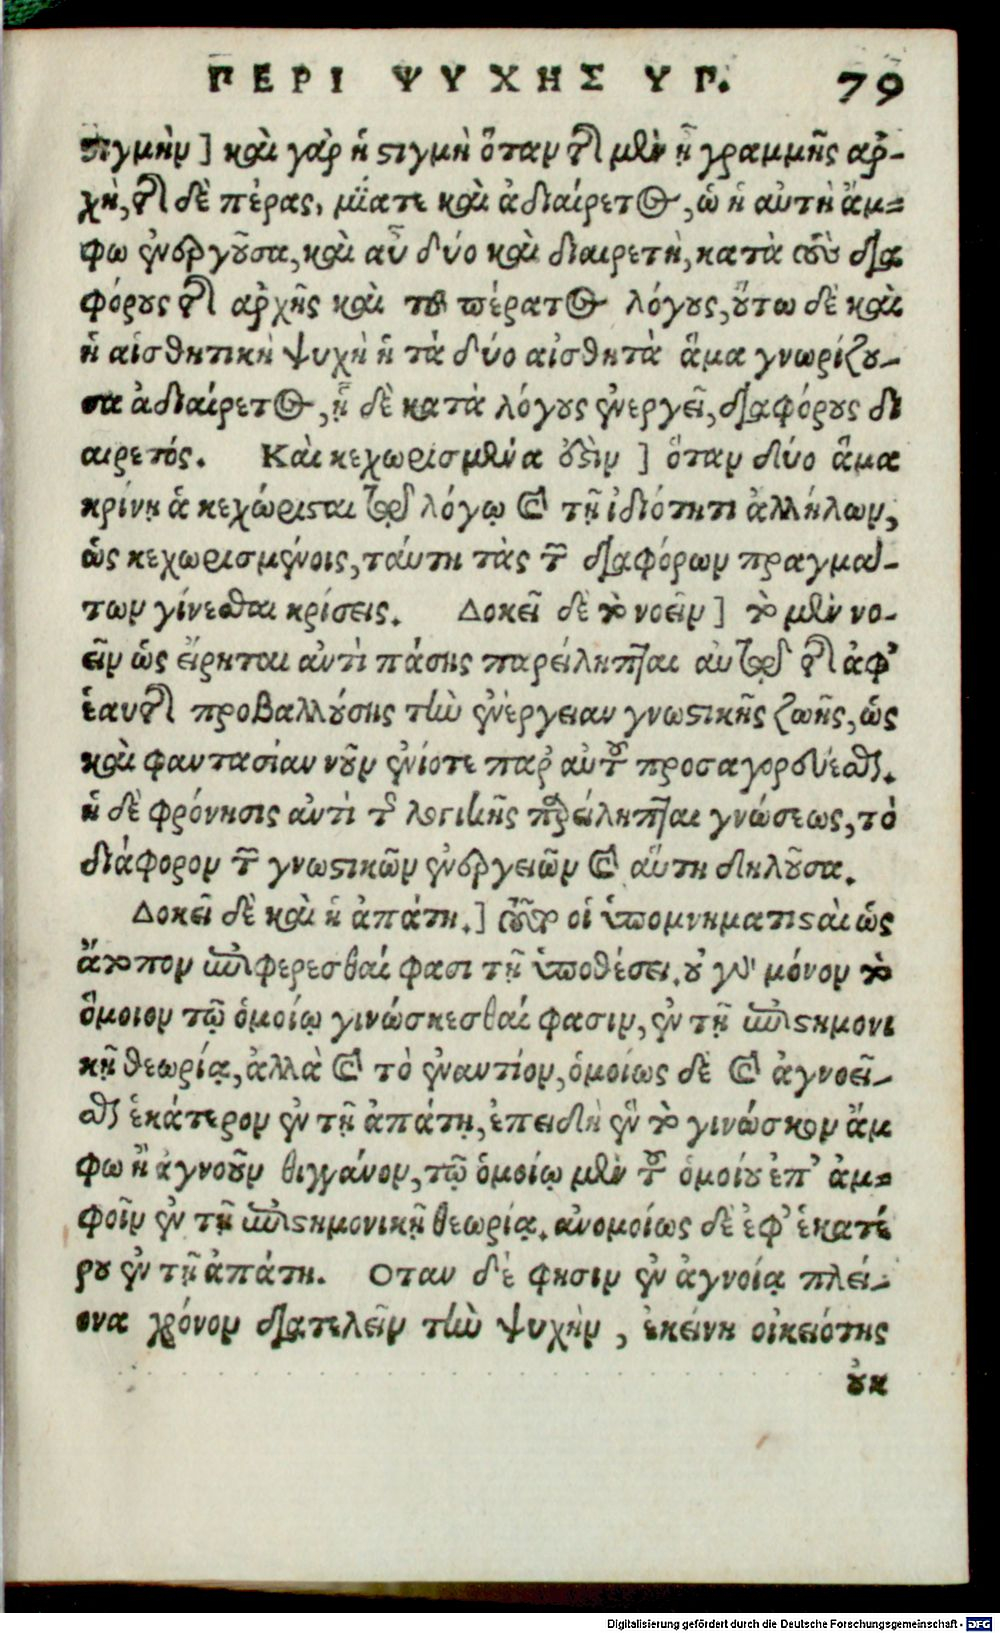 ΠΕΡΙ ΨΥΧΗΣ ΥΓ. 79
στιγμὴν] καὶ γὰρ ἡ στιγμὴ ὅταν τῆς μὲν ᾖ γραμμῆς ἀρ-
χὴ, τῆς δὲ πέρας, μία τε καὶ ἀδιαίρετος, ὡ ἡ αὐτὴ ἄμ-
φω ἐνεργοῦσα, καὶ αὖ δύο καὶ διαιρετὴ, κατὰ τοὺς δια
φόρους τῆς ἀρχῆς καὶ τοῦ πέρατος λόγους, οὕτω δὲ καὶ
ἡ αἰσθητικὴ ψυχὴ ἡ τὰ δύο αἰσθητὰ ἅμα γνωρίζου-
σα ἀδιαίρετος, ᾗ δὲ κατὰ λόγους ἐνεργεῖ, διαφόρους δι
αιρετός. Καὶ κεχωρισμένα ἐστὶν] ὅταν δύο ἅμα
κρίνῃ ἃ κεχώρισται τῷ λόγῳ καὶ τῇ ἰδιότητι ἀλλήλων,
ὡς κεχωρισμένοις, ταύτῃ τὰς τῶν διαφόρων πραγμά-
των γίνεσθαι κρίσεις. Δοκεῖ δὲ τὸ νοεῖν] τὸ μὲν νο-
εῖν ὡς εἴρηται ἀντὶ πάσης παρείληπται αὐτῷ τῆς ἀφ’
ἑαυτῆς προβαλλούσης τὴν ἐνέργειαν γνωστικῆς ζωῆς, ὡς
καὶ φαντασίαν νοῦν ἐνίοτε παρ’ αὐτοῦ προσαγορεύεσθαι.
ἡ δὲ φρόνησις ἀντὶ τῆς λογικῆς παρείληπται γνώσεως, τὸ
διάφορον τῶν γνωστικῶν ἐνεργειῶν καὶ αὕτη δηλοῦσα.
Δοκεῖ δὲ καὶ ἡ ἀπάτη.] τοῦτο οἱ ὑπομνηματισταὶ ὡς
ἄτοπον ἐπιφέρεσθαί φασι τῇ ὑποθέσει. οὐ γὰρ μόνον τὸ
ὅμοιον τῷ ὁμοίῳ γινώσκεσθαί φασιν, ἐν τῇ ἐπιστημονι
κῇ θεωρίᾳ, ἀλλὰ καὶ τὸ ἐναντίον, ὁμοίως δὲ καὶ ἀγνοεῖ-
σθαι ἑκάτερον ἐν τῇ ἀπάτῃ, ἐπειδὴ ἓν τὸ γινῶσκον ἄμ
φω ἢ ἀγνοοῦν θιγγάνον, τῷ ὁμοίῳ μὲν τοῦ ὁμοίου ἐπ’ ἀμ-
φοῖν ἐν τῇ ἐπιστημονικῇ θεωρίᾳ. ἀνομοίως δὲ ἐφ’ ἑκατέ
ρου ἐν τῇ ἀπάτῃ. Οταν δὲ φησιν ἐν ἀγνοίᾳ πλεί-
ονα χρόνον διατελεῖν τὴν ψυχὴν, ἐκείνη οἰκειότης
οὐκ
Digitalisierung gefördert durch die Deutsche Forschungsgemeinschaft - DFG